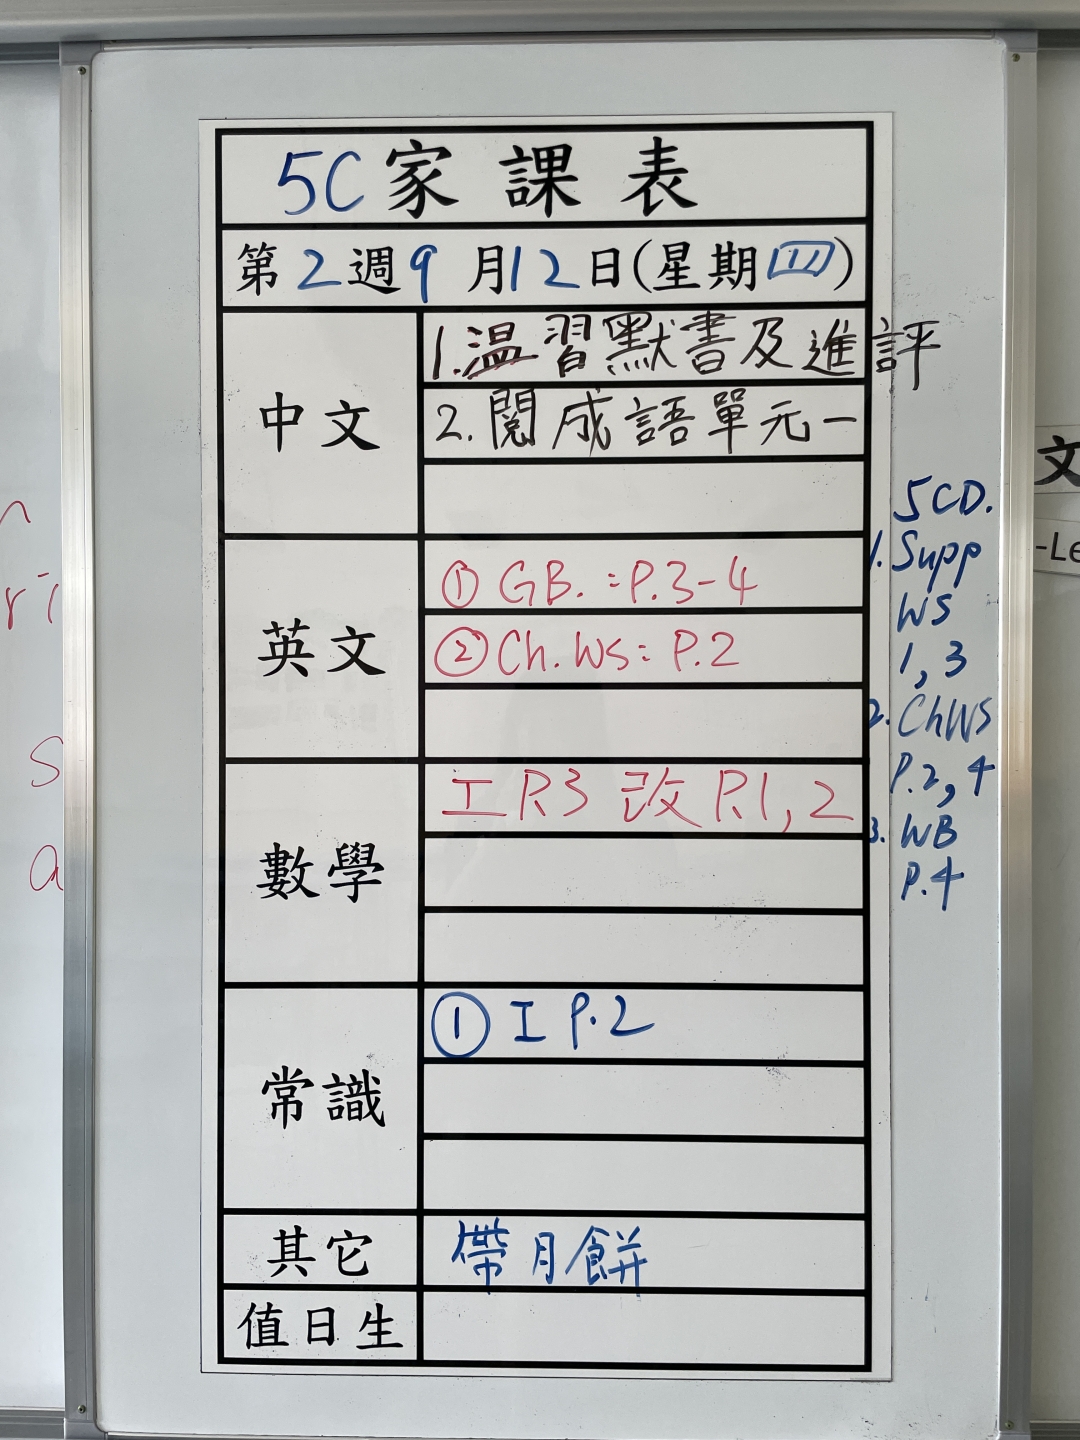 5C家課表
第2週9月12日(星期四)
中文
1.温習默書及進評
2.閱成語單元一
英文
① GB.:P.3-4
② Ch.WS: P.2
數學
工 P.3 改 P.1,2
常識
① 工 P.2
其它
帶月餅
值日生
5CD.
1. Supp
WS
1,3
2. ChWS
P.2,4
3. WB
P.4
文
-Le
n
ri
s
a